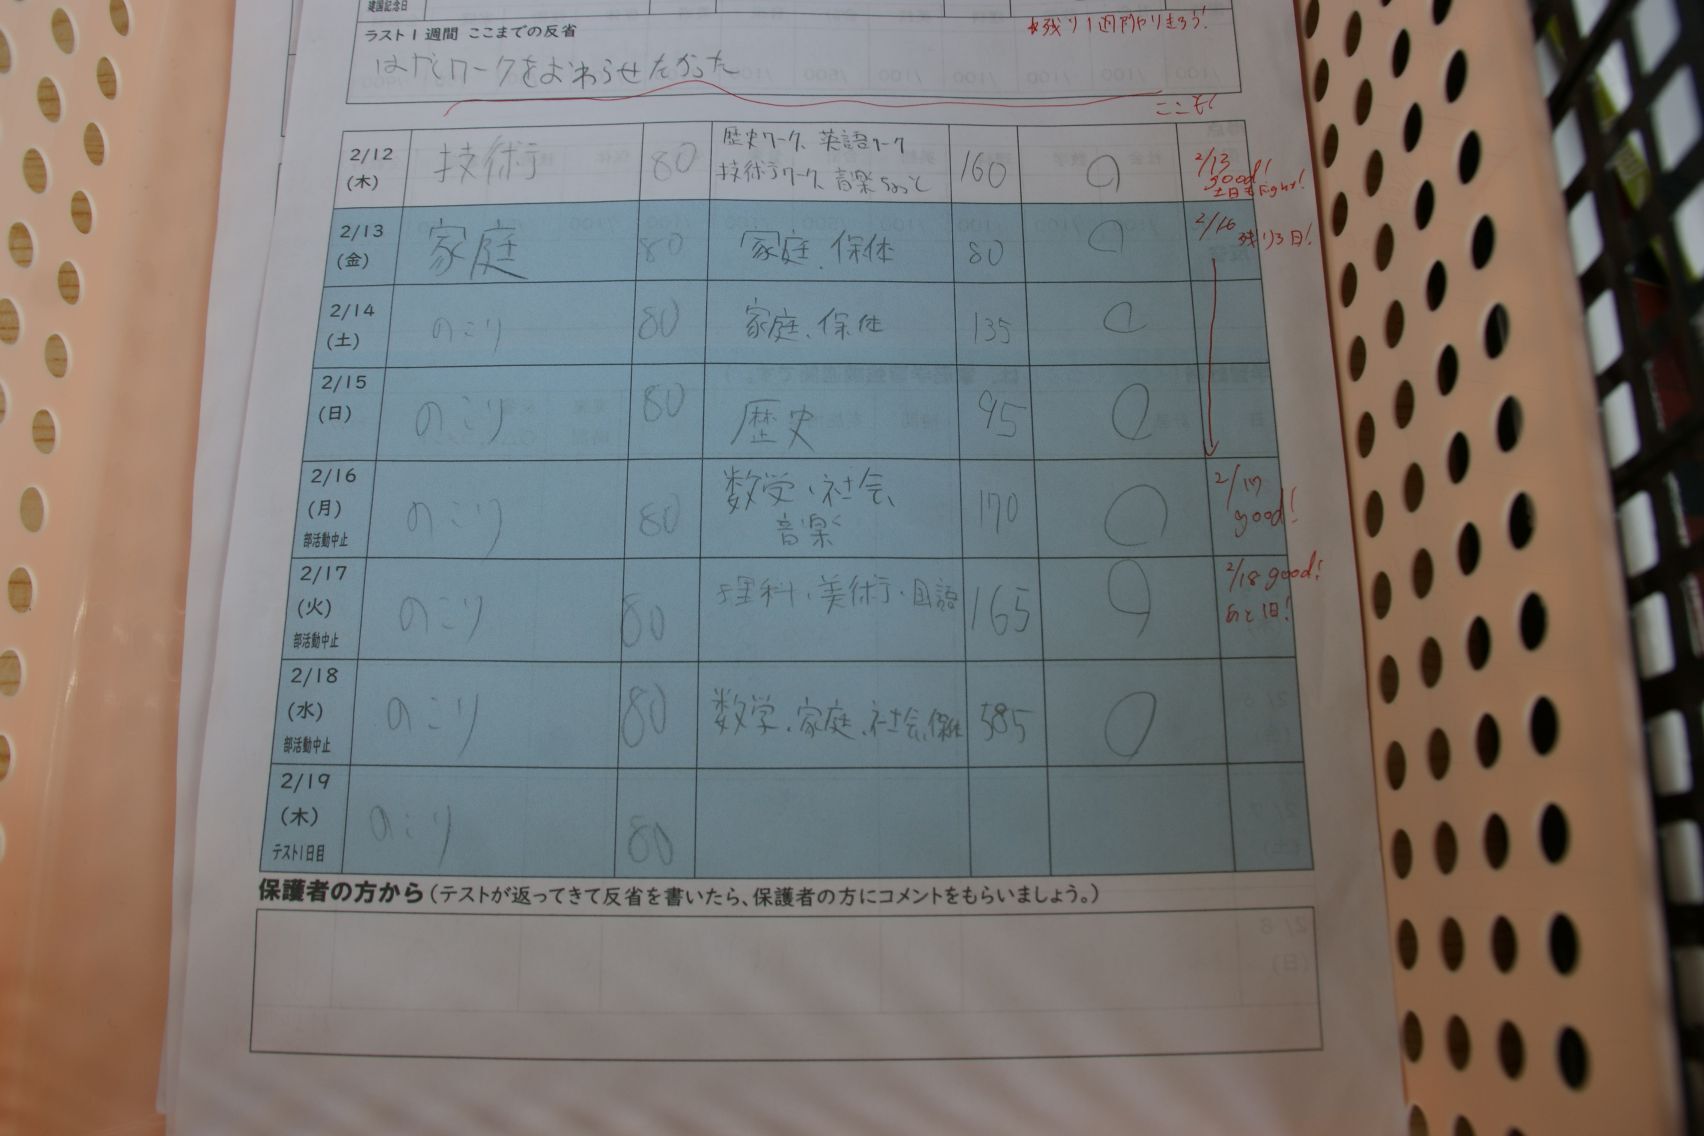 建国記念日
ラスト1週間 ここまでの反省
★残り1週間やりきろう!
はやくワークをおわらせたかった
ここぞ!
2/12
(木)
技術
80
歴史ワーク、英語ワーク
技術ワーク、音楽ちょっと
160
○
2/13
good!
土日もfight!
2/13
(金)
家庭
80
家庭、保体
80
○
2/16
残り3日!
2/14
(土)
のこり
80
家庭、保体
135
○
2/15
(日)
のこり
80
歴史
95
○
2/16
(月)
部活動中止
のこり
80
数学、社会、
音楽
170
○
2/17
good!
2/17
(火)
部活動中止
のこり
80
理科、美術、国語
165
○
2/18 good!
あと1日!
2/18
(水)
部活動中止
のこり
80
数学、家庭、社会、保体
385
○
2/19
(木)
テスト1日目
のこり
80
保護者の方から(テストが返ってきて反省を書いたら、保護者の方にコメントをもらいましょう。)